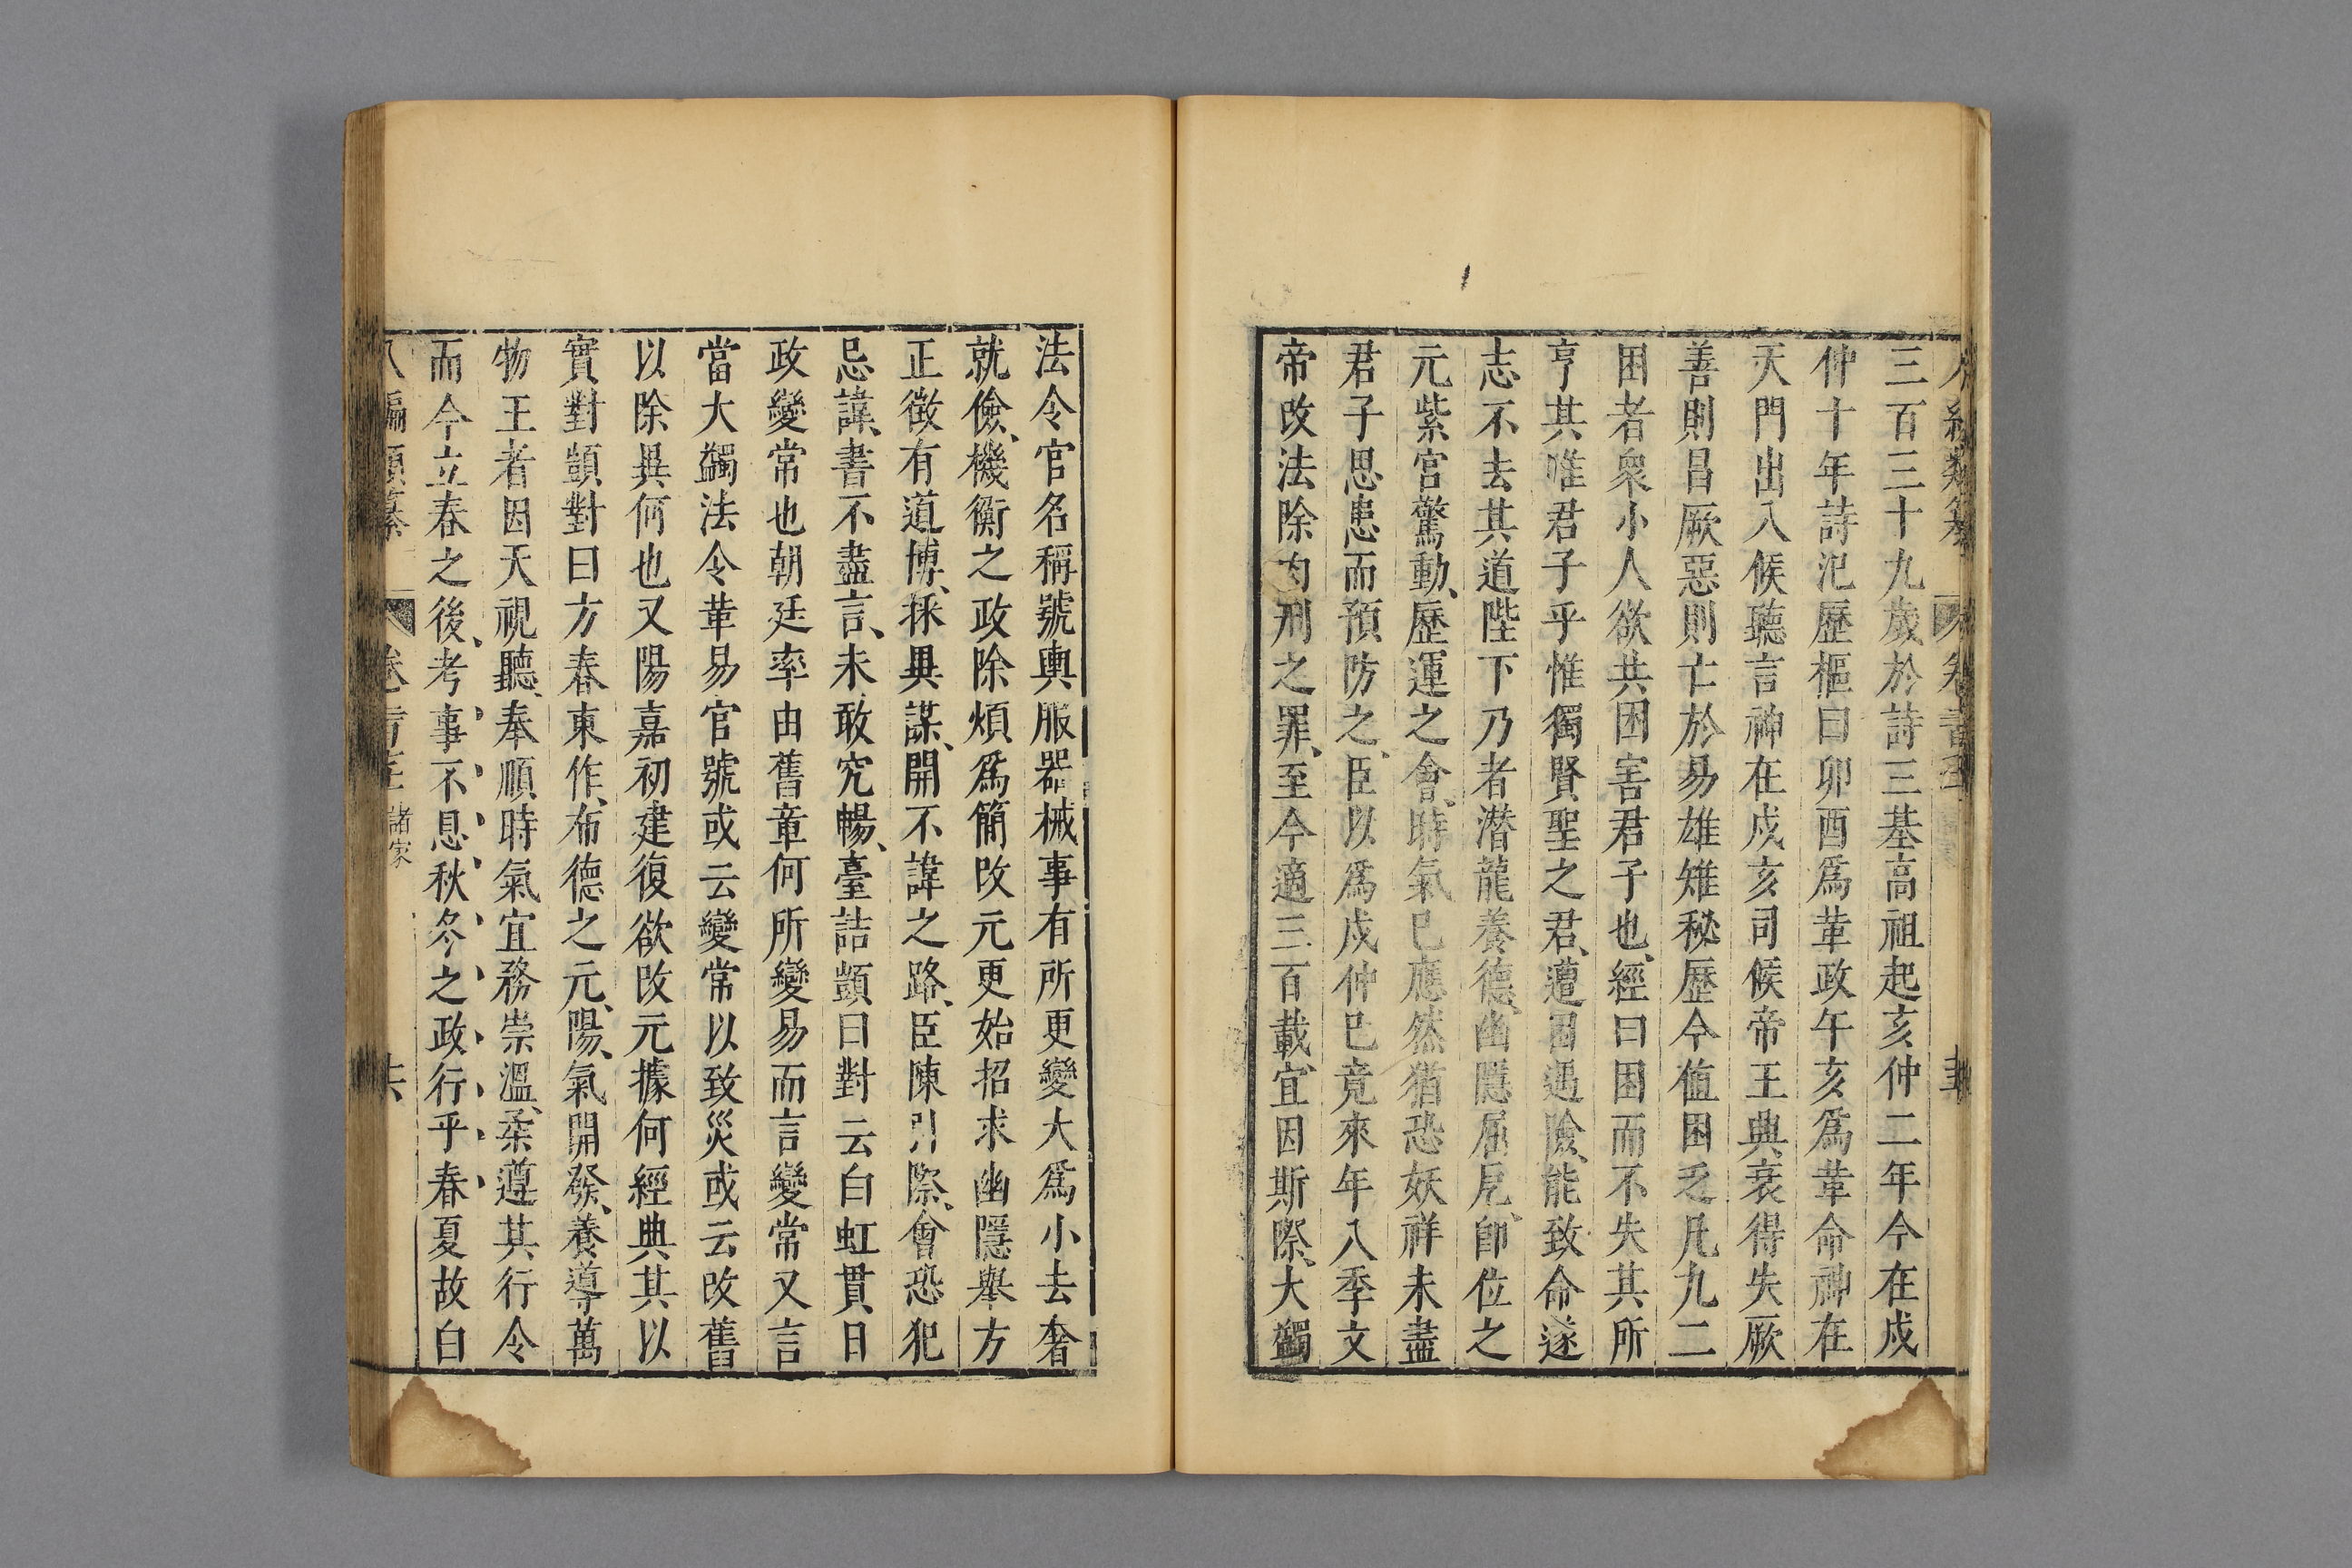 三百三十九歲於詩三基高祖起亥仲二年今在戍
仲十年詩氾歷樞曰卯酉爲革政午亥爲革命神在
天門出入候聽言神在戍亥司候帝王興衰得失厥
善則昌厥惡則亡於易雄雉秘歷今值困乏凡九二
困者衆小人欲共困害君子也經曰困而不失其所
亨其唯君子乎惟獨賢聖之君遭困遇險能致命遂
志不去其道陛下乃者潛龍養德幽隱屈厄卽位之
元紫宮驚動歷運之會時氣已應然猶恐妖祥未盡
君子思患而預防之臣以爲戍仲已竟來年入季文
帝改法除肉刑之罪至今適三百載宜因斯際大蠲
法令官名稱號輿服器械事有所更變大爲小去奢
就儉機衡之政除煩爲簡改元更始招求幽隱舉方
正徵有道博採異謀開不諱之路臣陳引際會恐犯
忌諱書不盡言未敢究暢臺詰顗曰對云白虹貫日
政變常也朝廷率由舊章何所變易而言變常又言
當大蠲法令革易官號或云變常以致災或云改舊
以除異何也又陽嘉初建復欲改元據何經典其以
實對顗對曰方春東作布德之元陽氣開發養導萬
物王者因天視聽奉順時氣宜務崇溫柔遵其行令
而今立春之後考事不息秋冬之政行乎春夏故白
編類纂 卷 諸家